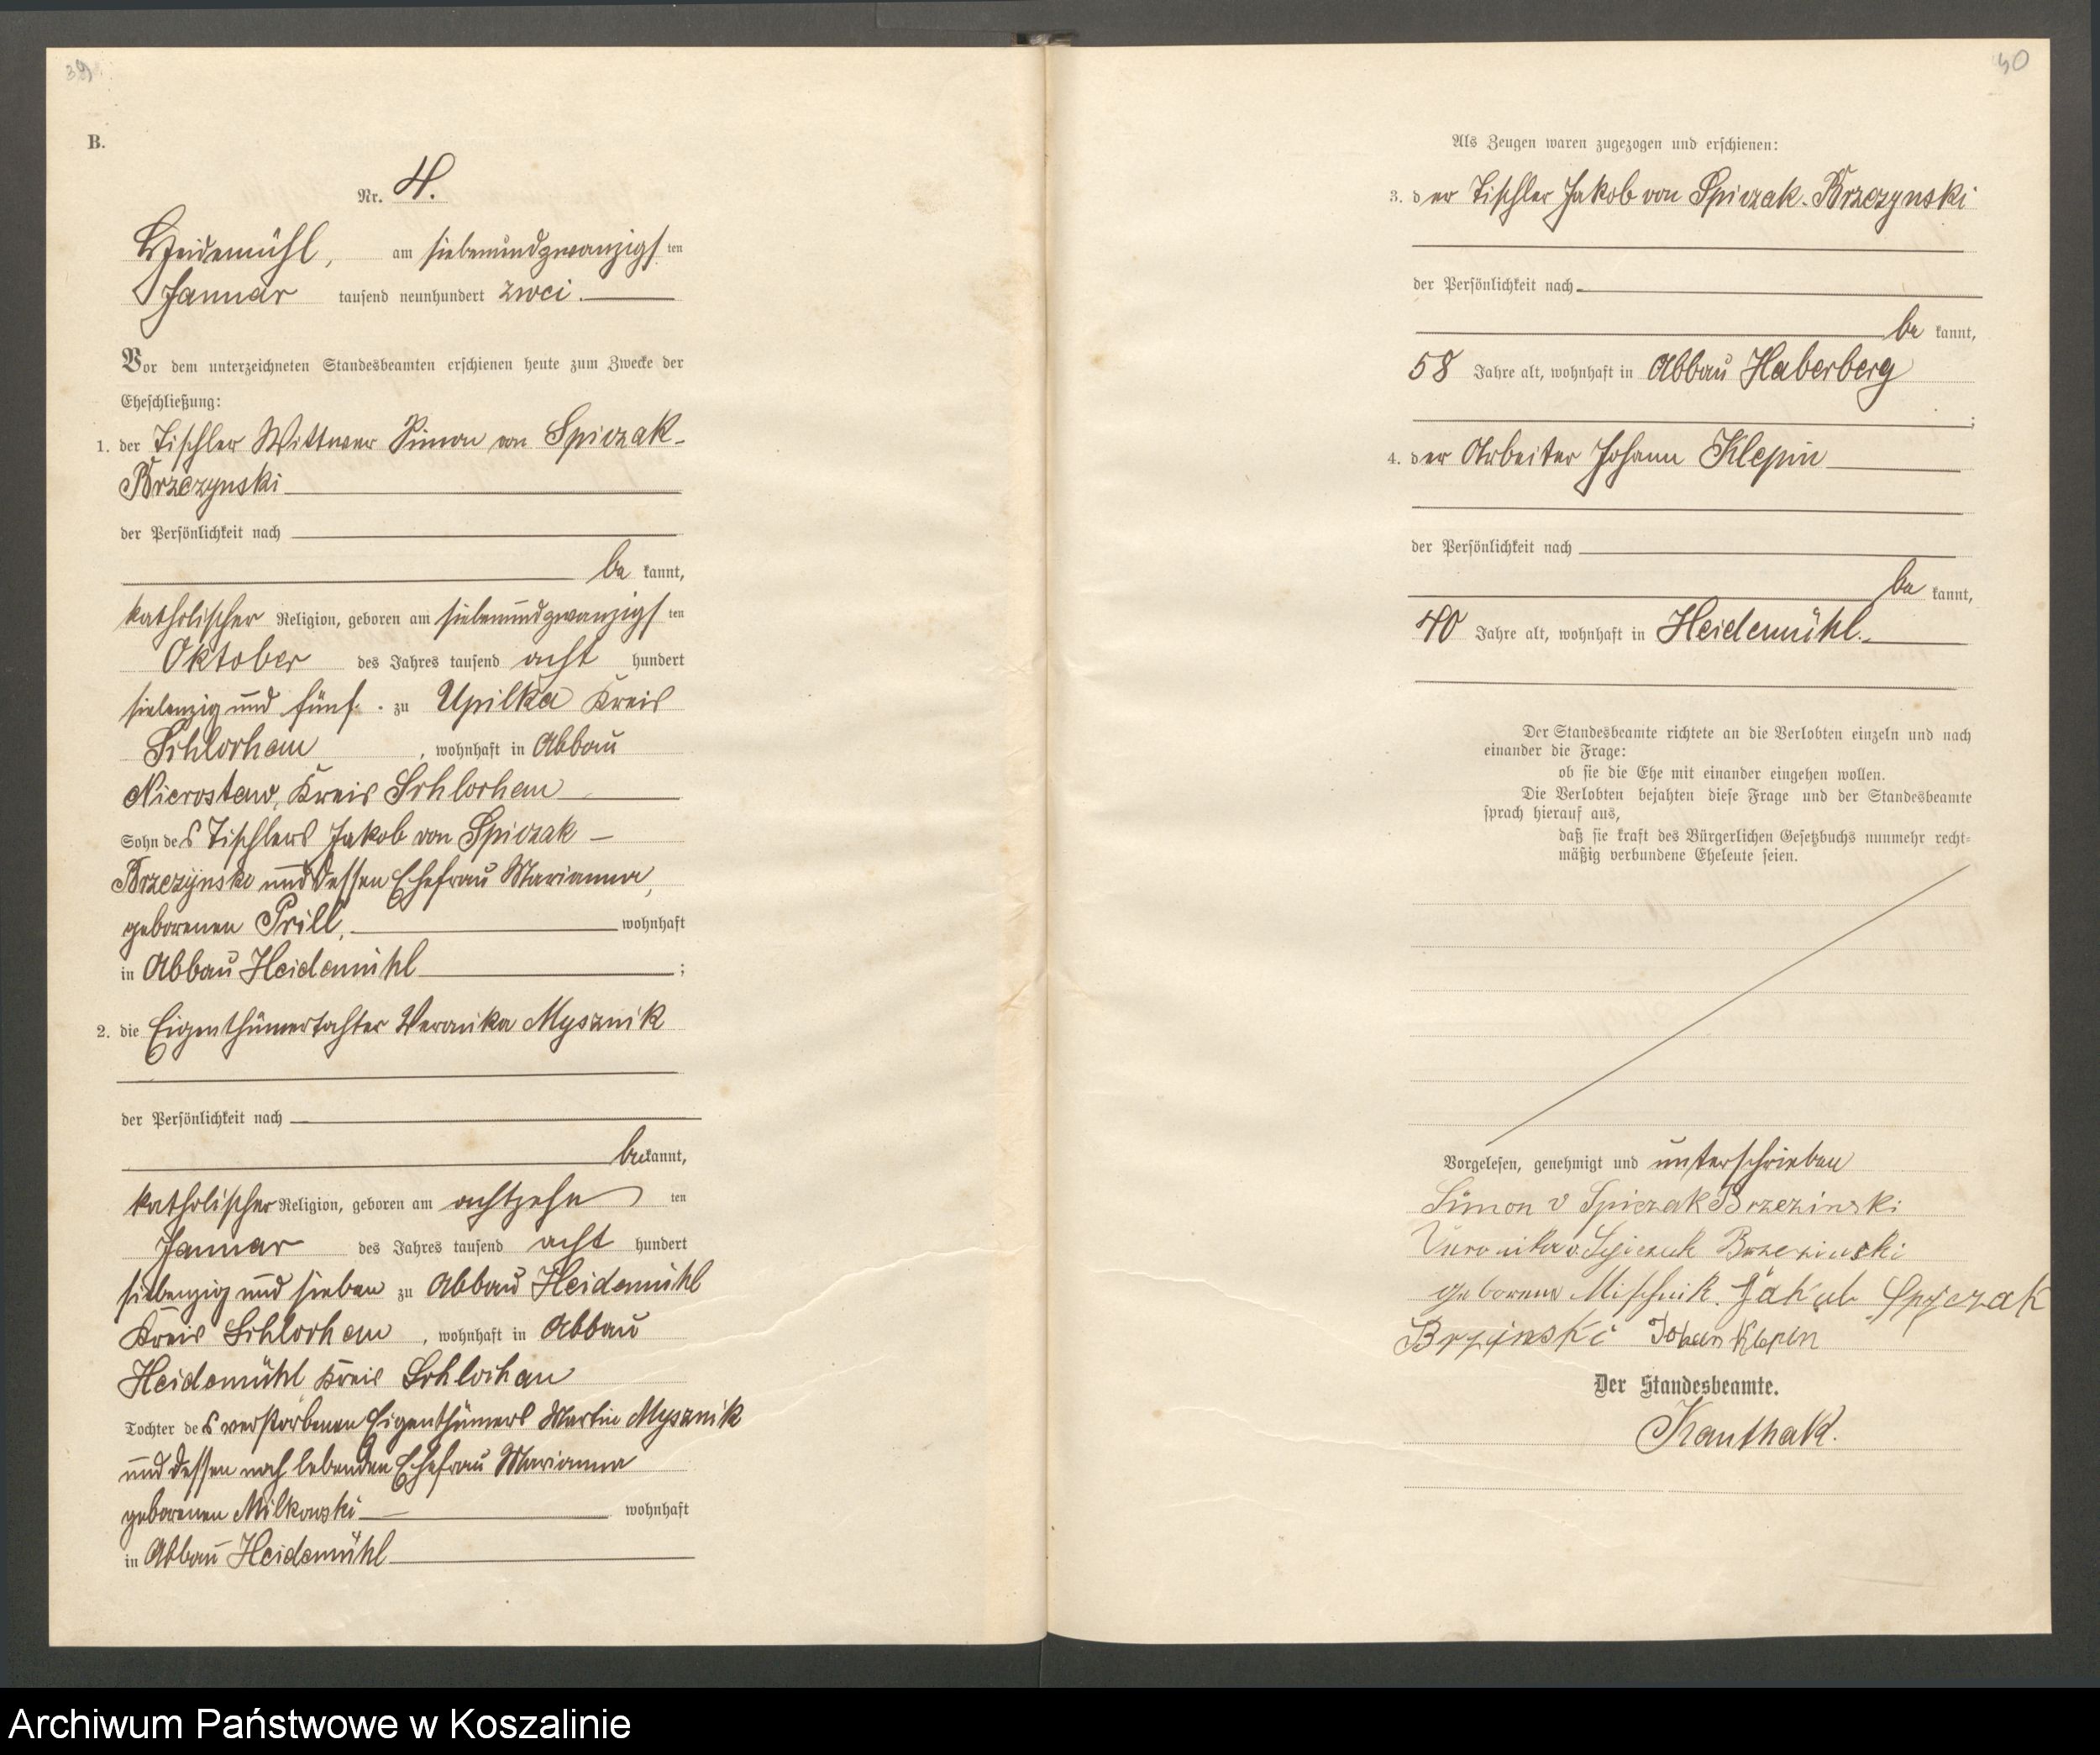 39
B.
Nr. 4.
Heidemühl, am siebenundzwanzigsten
Januar tausend neunhundert zwei.
Vor dem unterzeichneten Standesbeamten erschienen heute zum Zwecke der
Eheschließung:
1. der Tischler Wittwer Simon von Spiczak-
Brzezynski
der Persönlichkeit nach
be kannt,
katholischer Religion, geboren am siebenundzwanzigsten
Oktober des Jahres tausend acht hundert
siebenzig und fünf. zu Upilka Kreis
Schlochau, wohnhaft in Abbau
Nierostaw, Kreis Schlochau
Sohn des Tischlers Jakob von Spiczak –
Brzezynski und dessen Ehefrau Marianna,
geborenen Prill, wohnhaft
in Abbau Heidemühl;
2. die Eigenthümertochter Veronika Mysznik
der Persönlichkeit nach
be kannt,
katholischer Religion, geboren am achtzehnten
Januar des Jahres tausend acht hundert
siebenzig und sieben zu Abbau Heidemühl
Kreis Schlochau, wohnhaft in Abbau
Heidemühl Kreis Schlochau
Tochter des verstorbenen Eigenthümers Martin Mysznik
und dessen noch lebenden Ehefrau Marianna
geborenen Milkowski wohnhaft
in Abbau Heidemühl
40
Als Zeugen waren zugezogen und erschienen:
3. der Tischler Jakob von Spiczak-Brzezynski
der Persönlichkeit nach
be kannt,
58 Jahre alt, wohnhaft in Abbau Haberberg
;
4. der Arbeiter Johann Klepin
der Persönlichkeit nach
be kannt,
40 Jahre alt, wohnhaft in Heidemühl.
Der Standesbeamte richtete an die Verlobten einzeln und nach
einander die Frage:
ob sie die Ehe mit einander eingehen wollen.
Die Verlobten bejahten diese Frage und der Standesbeamte
sprach hierauf aus,
daß sie kraft des Bürgerlichen Gesetzbuchs nunmehr recht-
mäßig verbundene Eheleute seien.
Vorgelesen, genehmigt und unterschrieben
Simon v Spiczak Brzezinski
Veronika v. Spiczak Brzezinski
geborene Mischnik. Jakub Spyczak
Brzyinski Johan Klepin
Der Standesbeamte.
Kanthak.
Archiwum Państwowe w Koszalinie